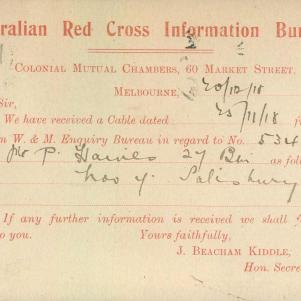 ralian Red Cross Information Bu
3
Colonial Mutual Chambers, 60 Market Street,
Melbourne, 20/12/18
Sir,
We have received a Cable dated 25/11/18 fr
n W. & M. Enquiry Bureau in regard to No. 534
P. Hawes 27 Bn as follo
Salisbury
If any further information is received we shall
o you. Yours faithfully,
J. Beacham Kiddle,
Hon. Secre